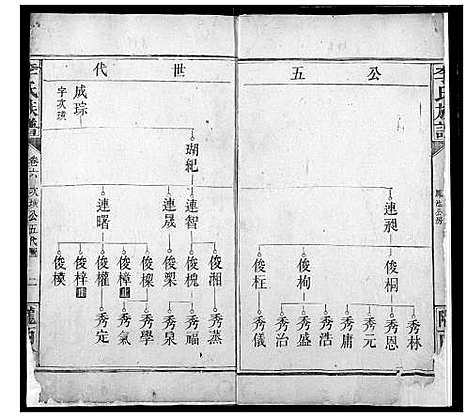 李氏族譜
公五
世代
連昶
俊桐
俊枸
俊枉
秀林
秀恩
秀元
秀庸
秀浩
秀盛
秀治
秀儀
成琮
字次璜
瑚紀
連智
連晟
連曙
俊湘
俊槐
俊榘
俊樑
俊樟 止
俊權
俊梓 止
俊模
秀蒸
秀福
秀泉
秀學
秀氣
秀定
李氏族譜
卷六
次璜公五代圖
二
隴西